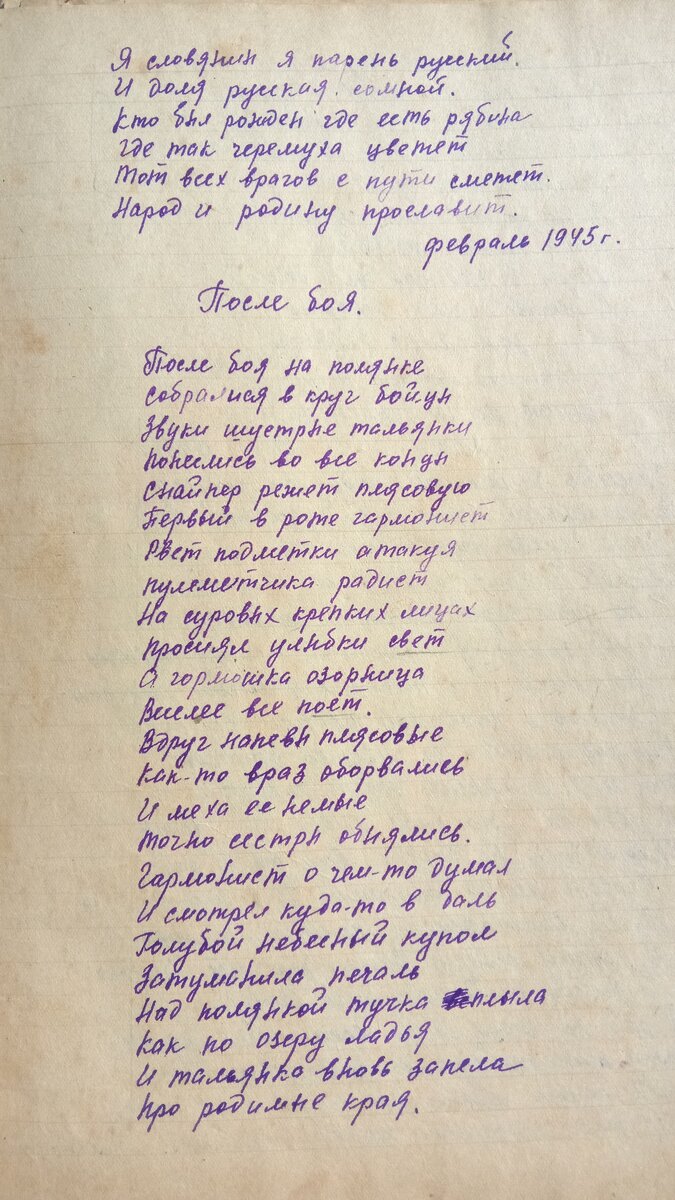 Я словянин я парень русский.
И доля русская сомной.
Кто был рожден где есть рябина
Где так черемуха цветет
Тот всех врагов с пути сметет.
Народ и родину прославит.
февраль 1945 г.
После боя.
После боя на полянке
собралися в круг бойцы
Звуки шустрые тальянки
понеслись во все концы
снайпер режет плясовую
Первый в роте гармонист
Рвет подметки атакуя
пулеметчика радист
На суровых крепких лицах
просиял улыбки свет
А гормошка озорница
Веселее все поёт.
Вдруг напевы плясовые
как-то враз оборвались
И меха ее немые
точно сестры обнялись.
Гармонист о чем-то думал
И смотрел куда-то в даль
Голубой небесный купол
Затуманила печаль
Над полянкой тучка плыла
как по озеру ладья
И тальянка вновь запела
про родимые края.